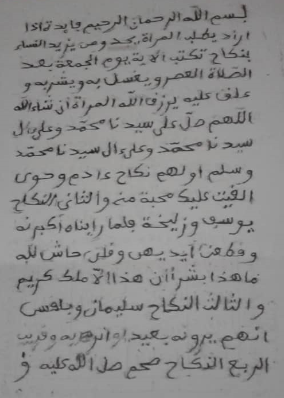 بسم الله الرحمان الرحيم فايدة اذا
اراد يطلب المراة يجد ومن يريد النساء
بنكاح تكتب الاية يوم الجمعة بعد
الصلاة العصر ويغسل به ويشربه و
علق عليه يرزق الله المراة ان شاء الله
اللهم صل على سيدنا محمد وعلى ال
سيدنا محمد وعلى ال سيدنا محمد
وسلم اولهم نكاح ءادم وحوى
القيت عليك محبة مني والثاني النكاح
يوسف وزليخة فلما راينه اكبرنه
وقطعن ايديهن وقلن حاش لله
ما هذا بشرا ان هذا الا ملك كريم
والثالث النكاح سليمان وبلقس
انهم يرونه بعيدا ونريه قريب
الربع النكاح محمد صل الله عليه و